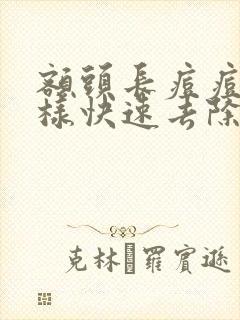 額頭長痘痘
樣快速去除
克林 羅賓遜